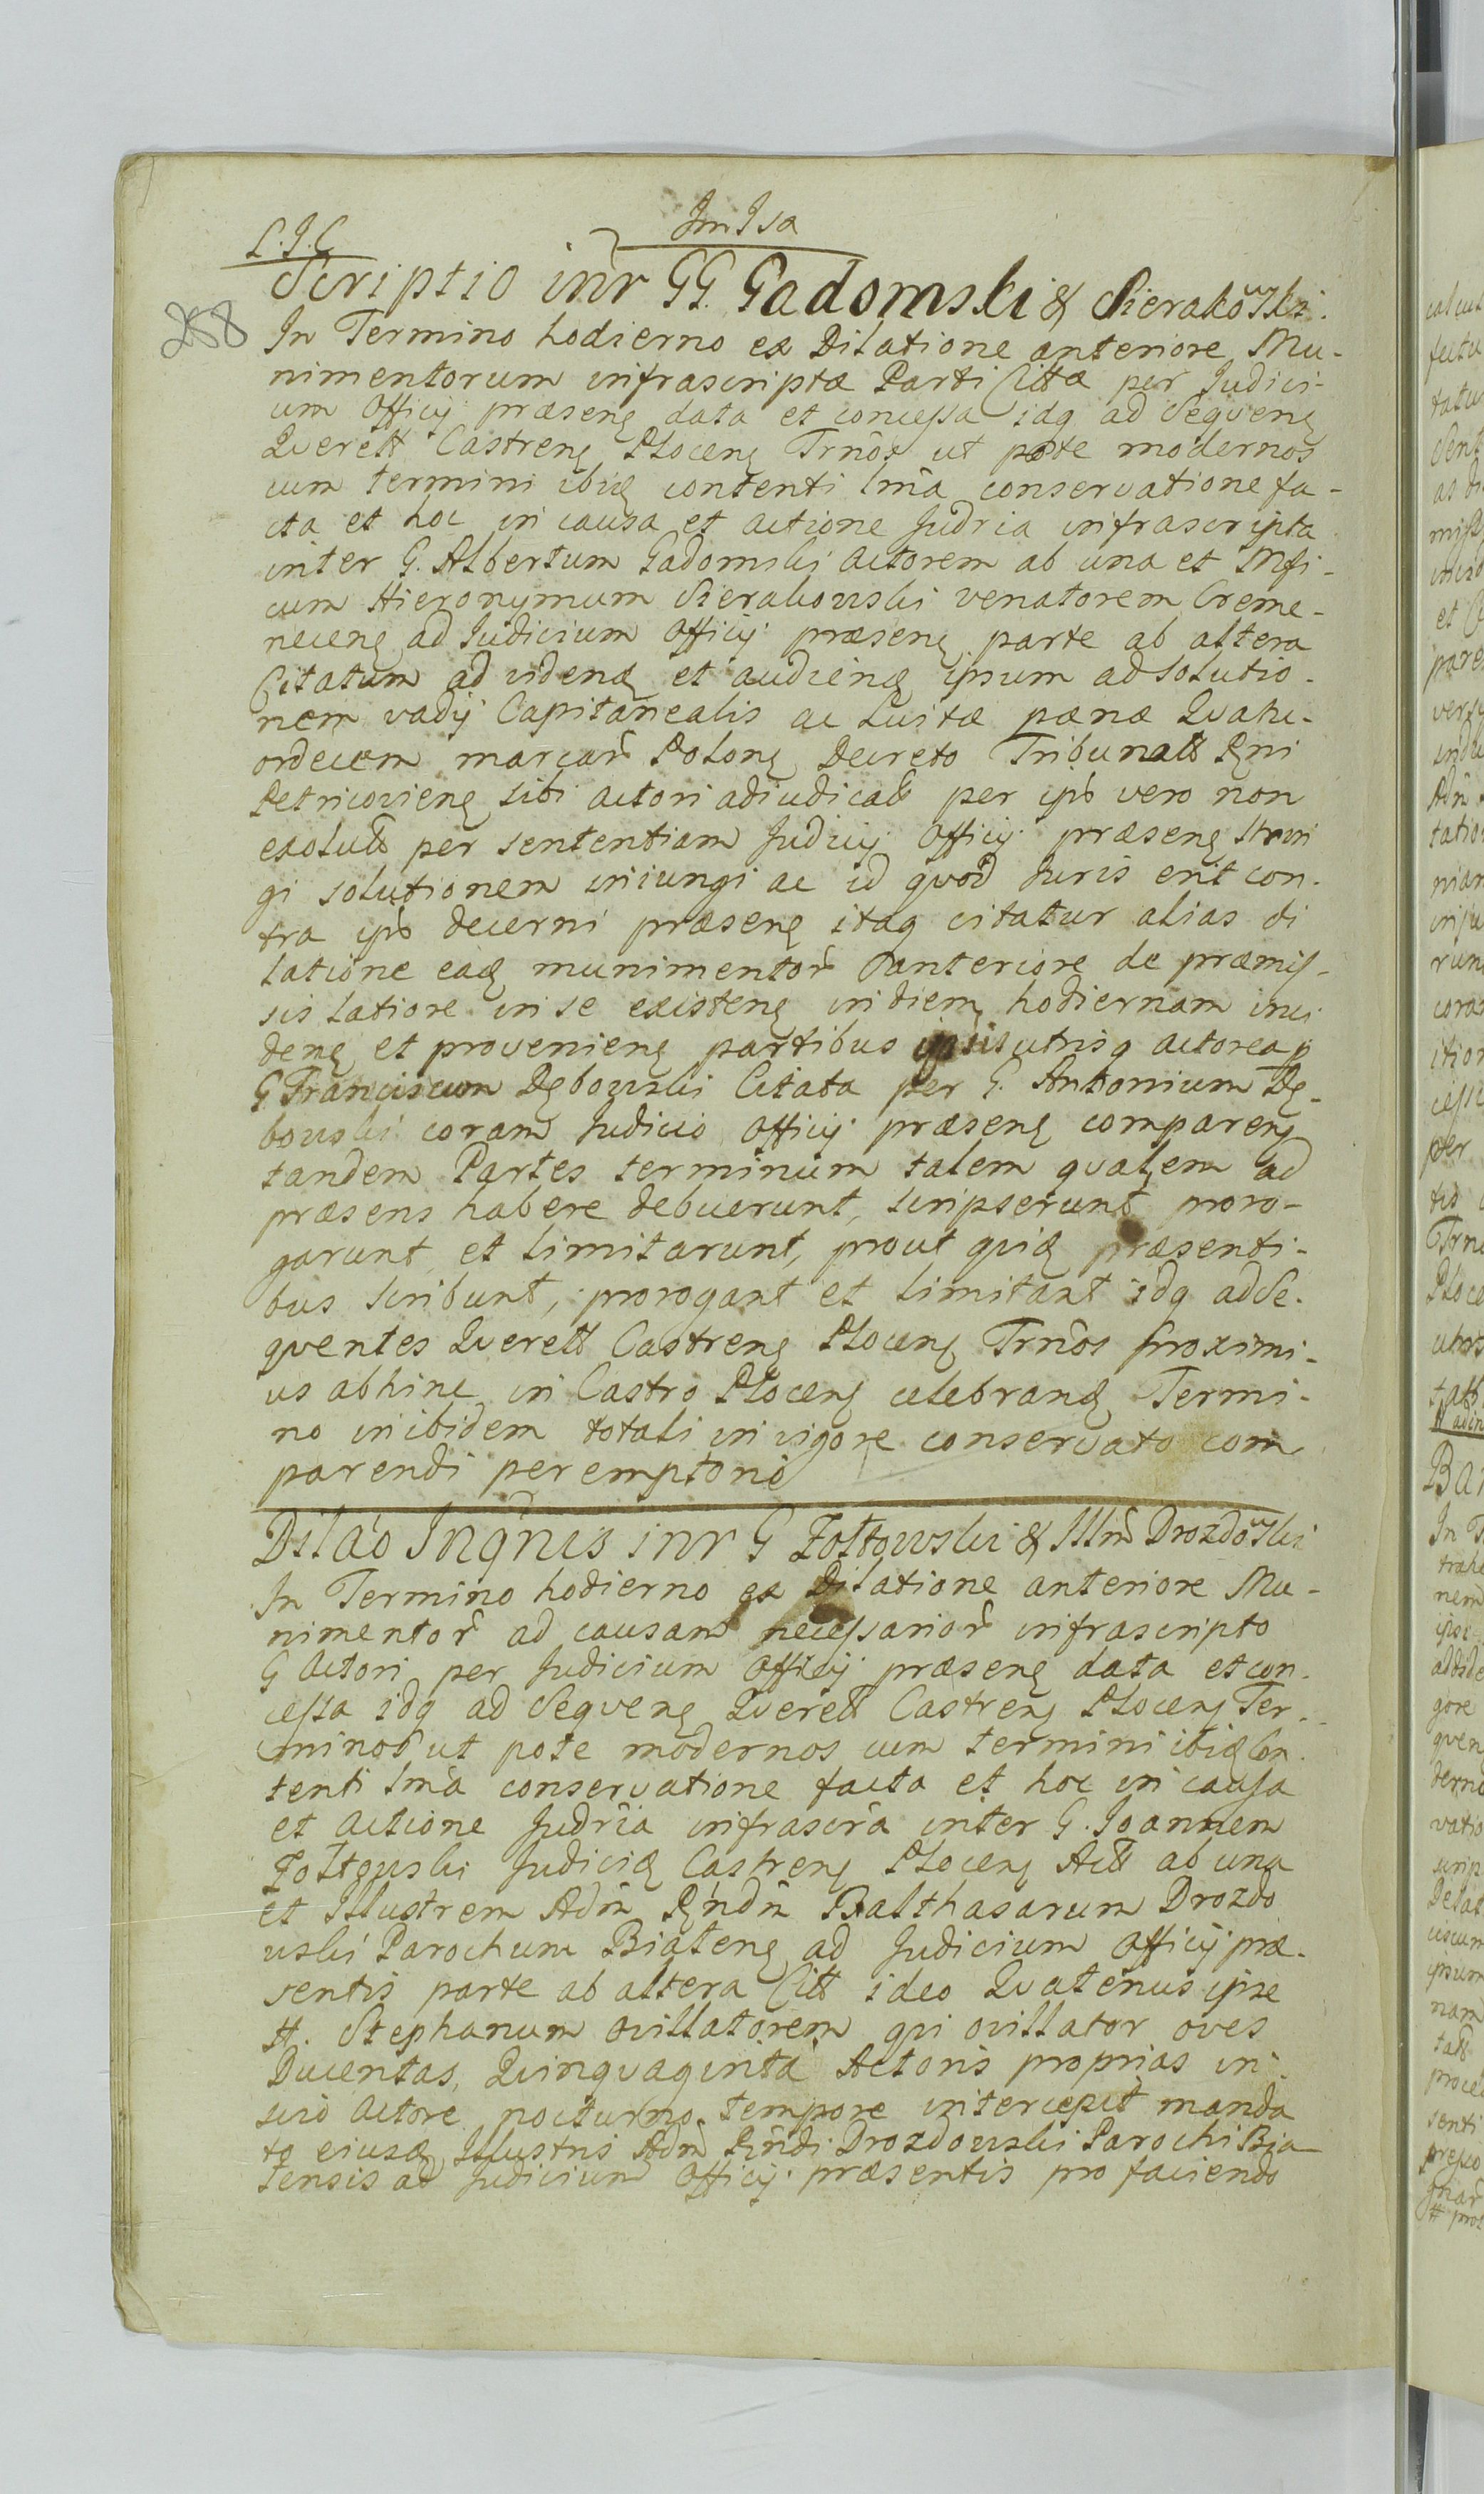 L. I. C
258
Scriptio inr̃ GG. Gadomski & Sierakowski.
In Termino hodierno ex Dilatione anteriore Mu-
nimentorum infrascriptæ Parti Cittæ per Judici-
um Officij præseng data et concessa idq ad Seqveng
Qverell Castreng Ploceng Trños ut pote modernos
cum termini ibiq contenti lmã conservatione fa-
cta et hoc in causa et actione Judria infrascripta
inter G. Albertum Gadomski actorem ab una et Mfi-
cum Hieronymum Sierakowski venatorem Creme-
neceng ad Judicium Officij præseng parte ab altera
Citatum ad videnq et audienq ipsum ad solutio-
nem vadij Capitanealis ac Luitæ pænæ Qvatu-
ordecem marcar̃ Polong Decreto Tribunall Rgni
Petricovieng sibi actori adiudicatt per ipb vero non
exolutt per sententiam Judicij Officij præseng strin
gi solutionem iniungi ac id qvod Juris erit con-
tra ipb decerni præseng itaq citatur alias di
latione eaq munimentor̃ anteriore de præmis-
sis latiore in se existeng in diem hodiernam inci
deng et provenieng partibus ipsis utrisq actorea p
G Franciscum Dębowski Citata per G. Antonium Dę-
bowski coram Judicio Officij præseng compareng
tandem Partes terminum talem qvalem ad
præsens habere debuerunt, scripserunt proro-
garunt, et limitarunt, prout qviq præsenti-
bus scribunt, prorogant et limitant idq ad Se-
qventes Qverell Castreng Ploceng Trños proximi-
us abhinc in Castro Ploceng celebranq Termi-
no inibidem totali in vigore conservato com
parendi peremptoriè
Dilao Inqñis inr G Żółtowski & Illm̃ Drozdowski
In Termino hodierno ex Dilatione anteriore Mu-
nimentor̃ ad causam necessarior̃ infrascripto
G Actori per Judicium Officij præseng data et con-
cessa idq ad Seqveng Qverell Castreng Ploceng Ter-
minos ut pote modernos cum termini ibiq Con-
tenti lmã conservatione facta et hoc in causa
et Actione Judria infrascrã inter G. Joannem
Żołtowski Judiciq Castreng Ploceng Actt ab una
et Illustrem Adm̃ Rñdm̃ Balthasarum Drozdo
wski Parochum Białeng ad Judicium Officij præ-
sentis parte ab altera Citt ideo Qvatenus ipse
H. Stephanum ovillatorem qvi ovillator oves
Ducentas, Qvinqvaginta Actoris proprias in
scio Actore nocturno tempore intercepit manda
to eiusq Illustris Adm̃ Rñdi Drozdowski Parochi Bia
lensis ad Judicium Officij præsentis pro faciendo